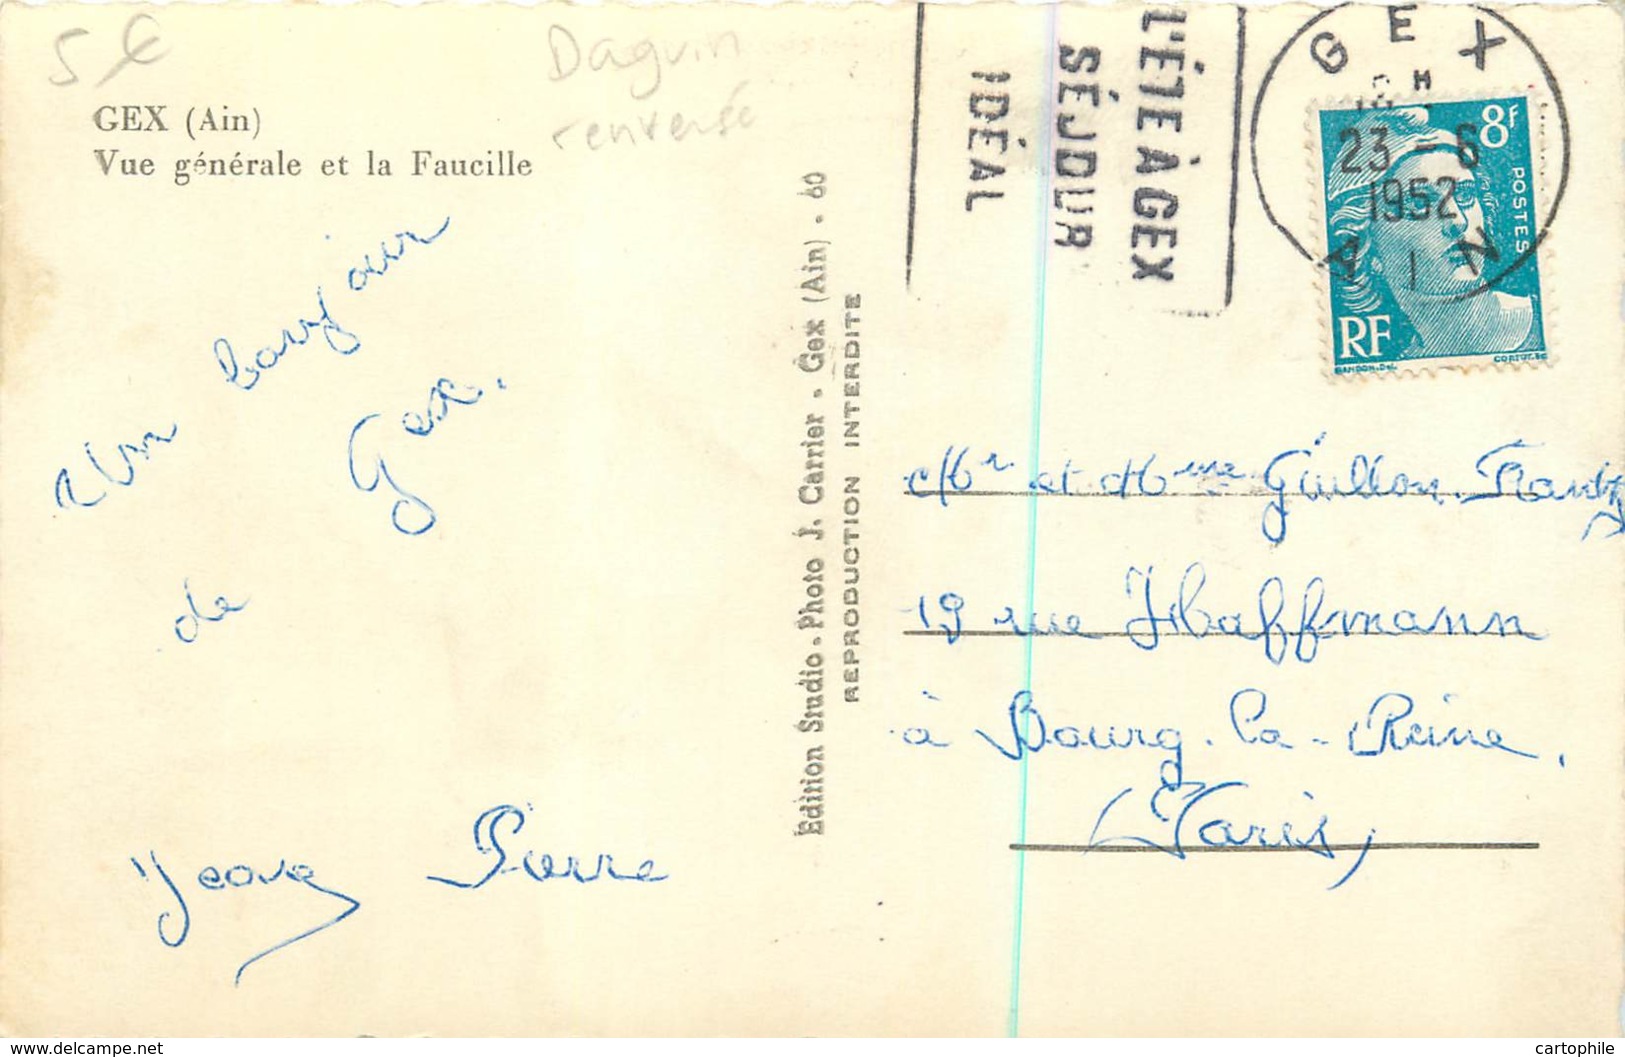 5 €
Daguin
renversé
GEX (Ain)
Vue générale et la Faucille
Un bonjour
de Gex.
Jean Pierre
Edition Studio - Photo J. Carrier - Gex (Ain) - 60
REPRODUCTION INTERDITE
L'ÉTÉ À GEX
SÉJOUR
IDÉAL
GEX
23 - 6
1952
AIN
8F
POSTES
RF
GANDON.Del
CORTOT.SC
Mr et Mme Guillon. Frantz
19 rue Hoffmann
à Bourg-la-Reine,
(Paris)
www.delcampe.net
cartophile